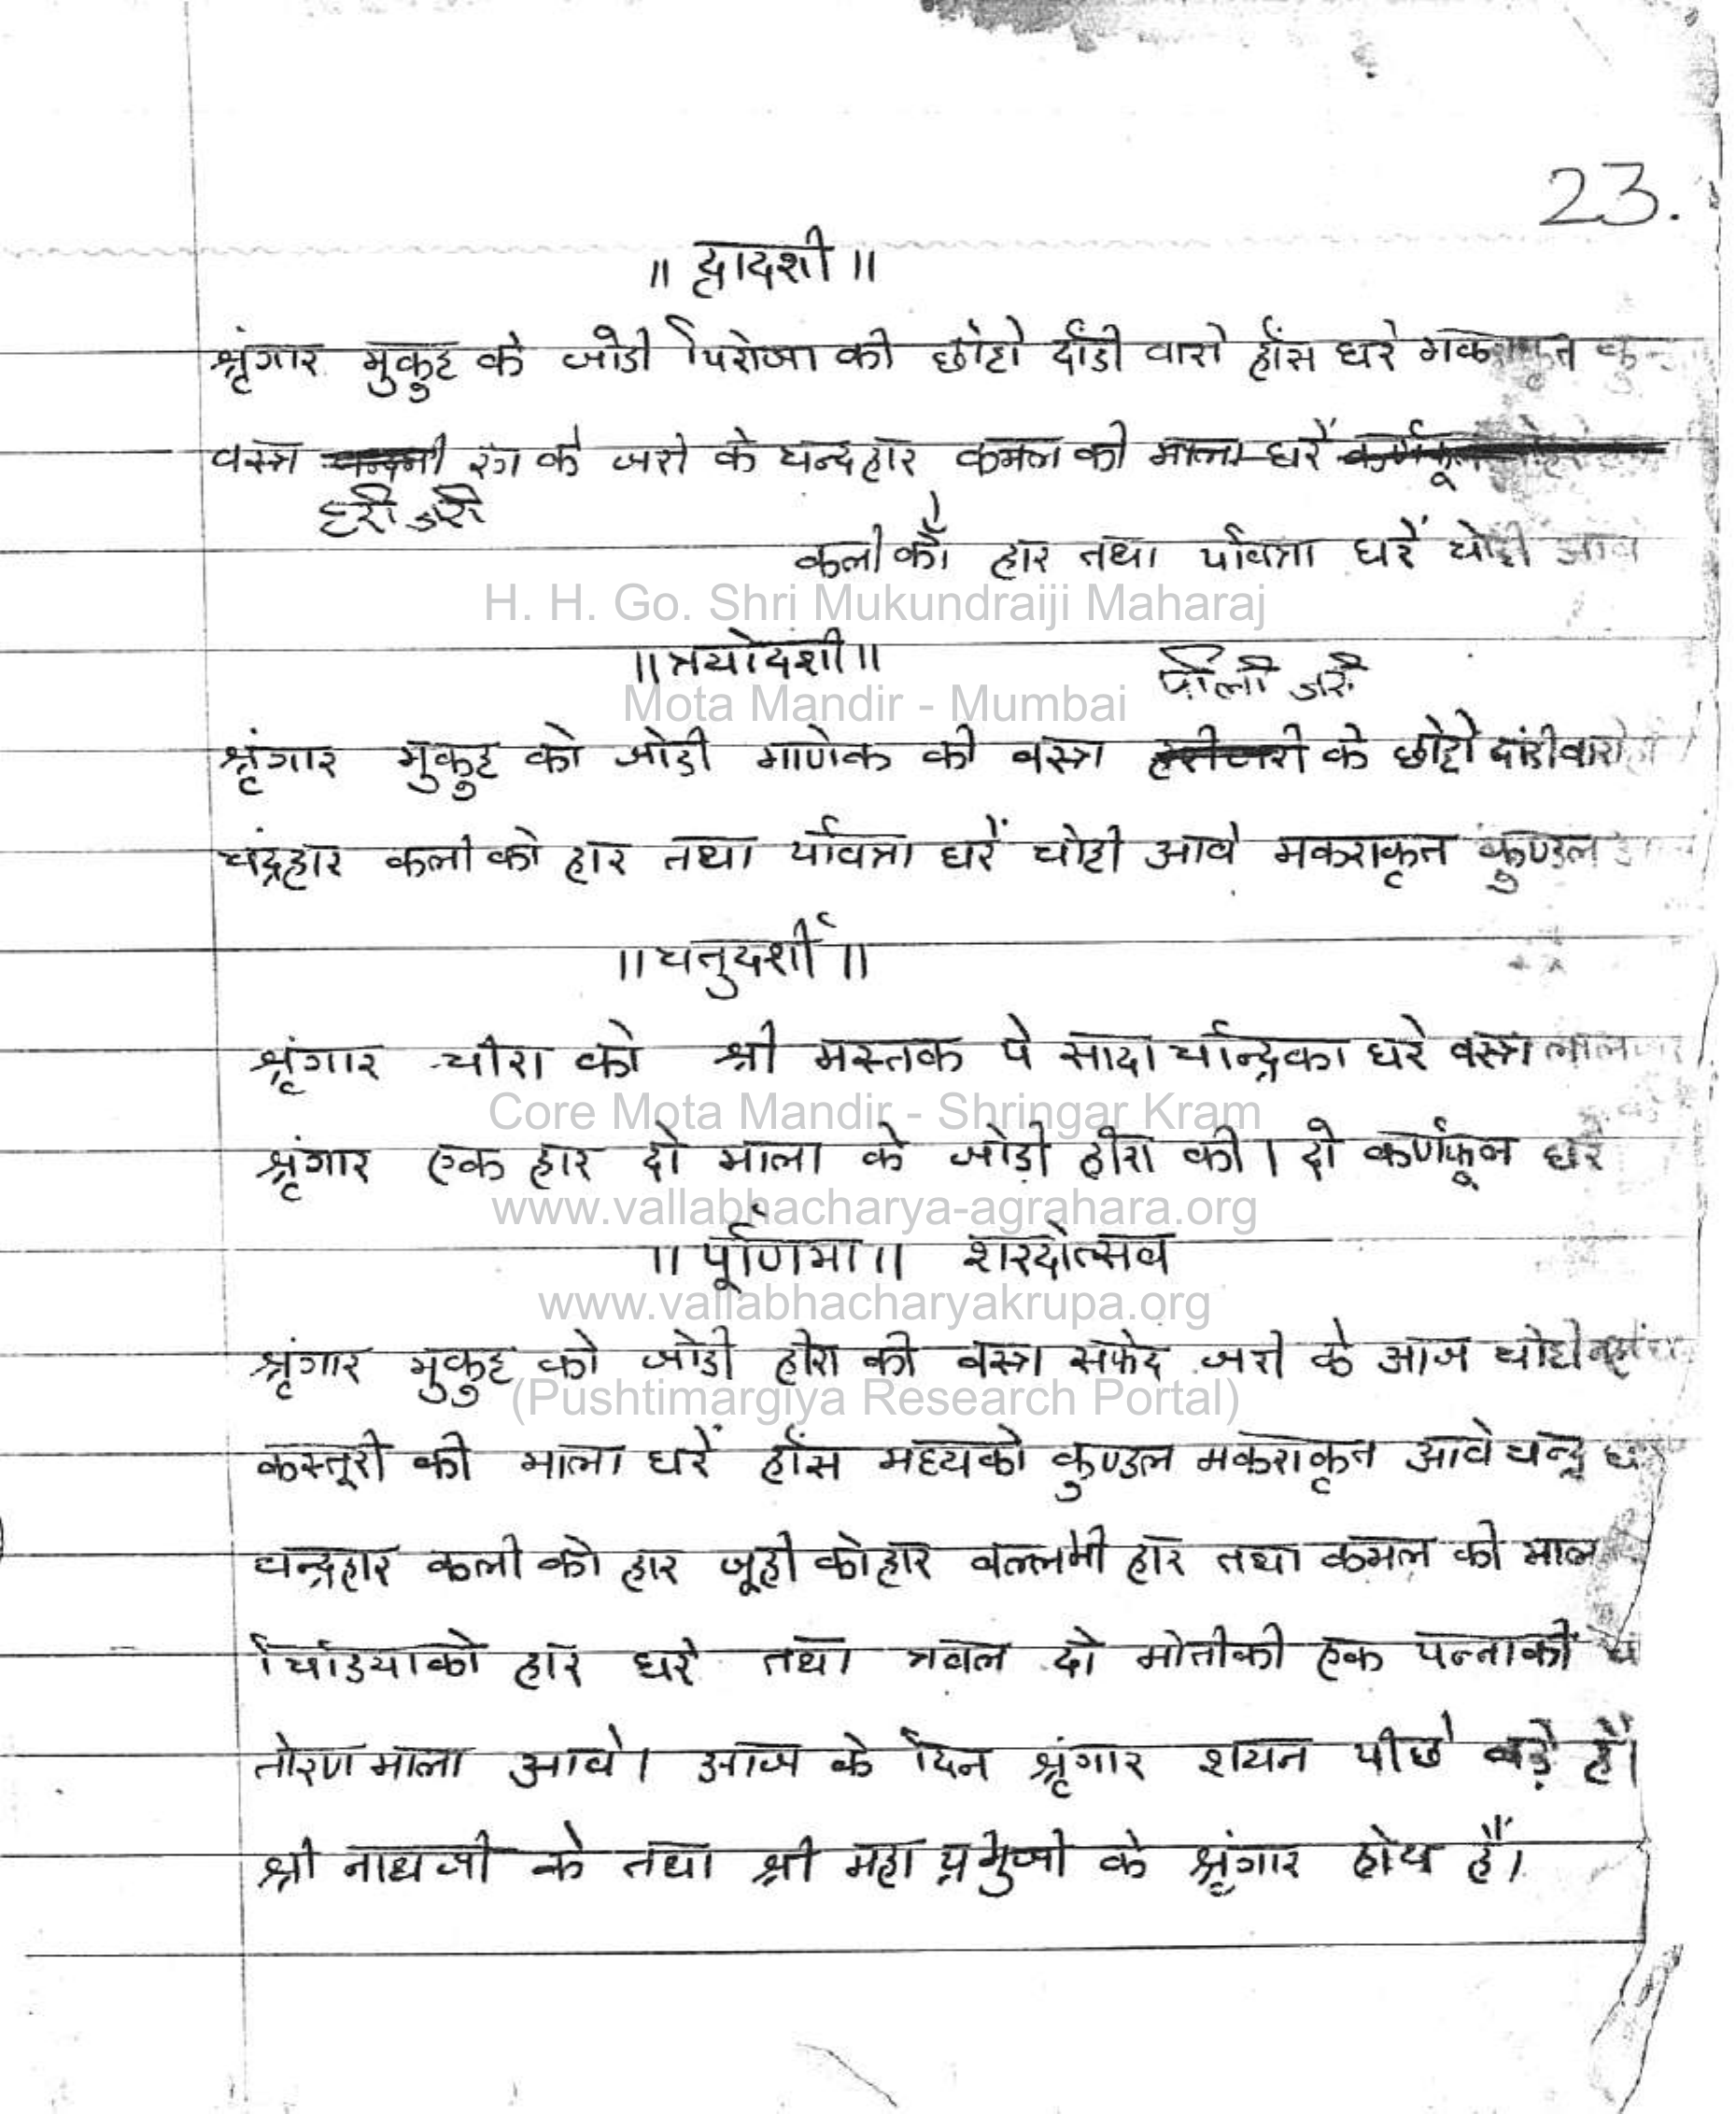 23.
॥ द्वादशी ॥
श्रृंगार मुकुट को जोडी पिरोजा की छोटो दाँडी वारो हाँस धरे मकराकृत
वस्त्र रंग के जरी के चन्द्रहार कमल की माला धरें
हरी जरी
कली कौ हार तथा पवित्रा धरें चोटी आवे
H. H. Go. Shri Mukundraiji Maharaj
॥ त्रयोदशी ॥ पीली जरी
Mota Mandir - Mumbai
श्रृंगार मुकुट को जोडी माणेक की वस्त्र के छोटो दांडी वारो
चंद्रहार कली को हार तथा पवित्रा धरें चोटी आवे मकराकृत कुण्डल
॥ चतुदर्शी ॥
श्रृंगार चीरा को श्री मस्तक पे सादा चन्द्रिका धरे वस्त्र लाल
Core Mota Mandir - Shringar Kram
श्रृंगार एक हार दो माला के जोडी हीरा की । दो कर्णफूल धरें
www.vallabhacharya-agrahara.org
॥ पूर्णिमा ॥ शरदोत्सव
www.vallabhacharyakrupa.org
श्रृंगार मुकुट को जोडी हीरा की वस्त्र सफेद जरी के आज चोटी नहीं
(Pushtimargiya Research Portal)
कस्तूरी की माला धरें हाँस मध्य को कुण्डल मकराकृत आवे चन्द्र
चन्द्रहार कली को हार जूही को हार वल्लभी हार तथा कमल की माल
चिडिया को हार धरें तथा त्रवल दो मोती की एक पन्ना की
तोरण माला आवे । आज के दिन श्रृंगार शयन पीछे बड़े हैं ।
श्री नाथ जी के तथा श्री महा प्रभुजी के श्रृंगार होय हैं ।